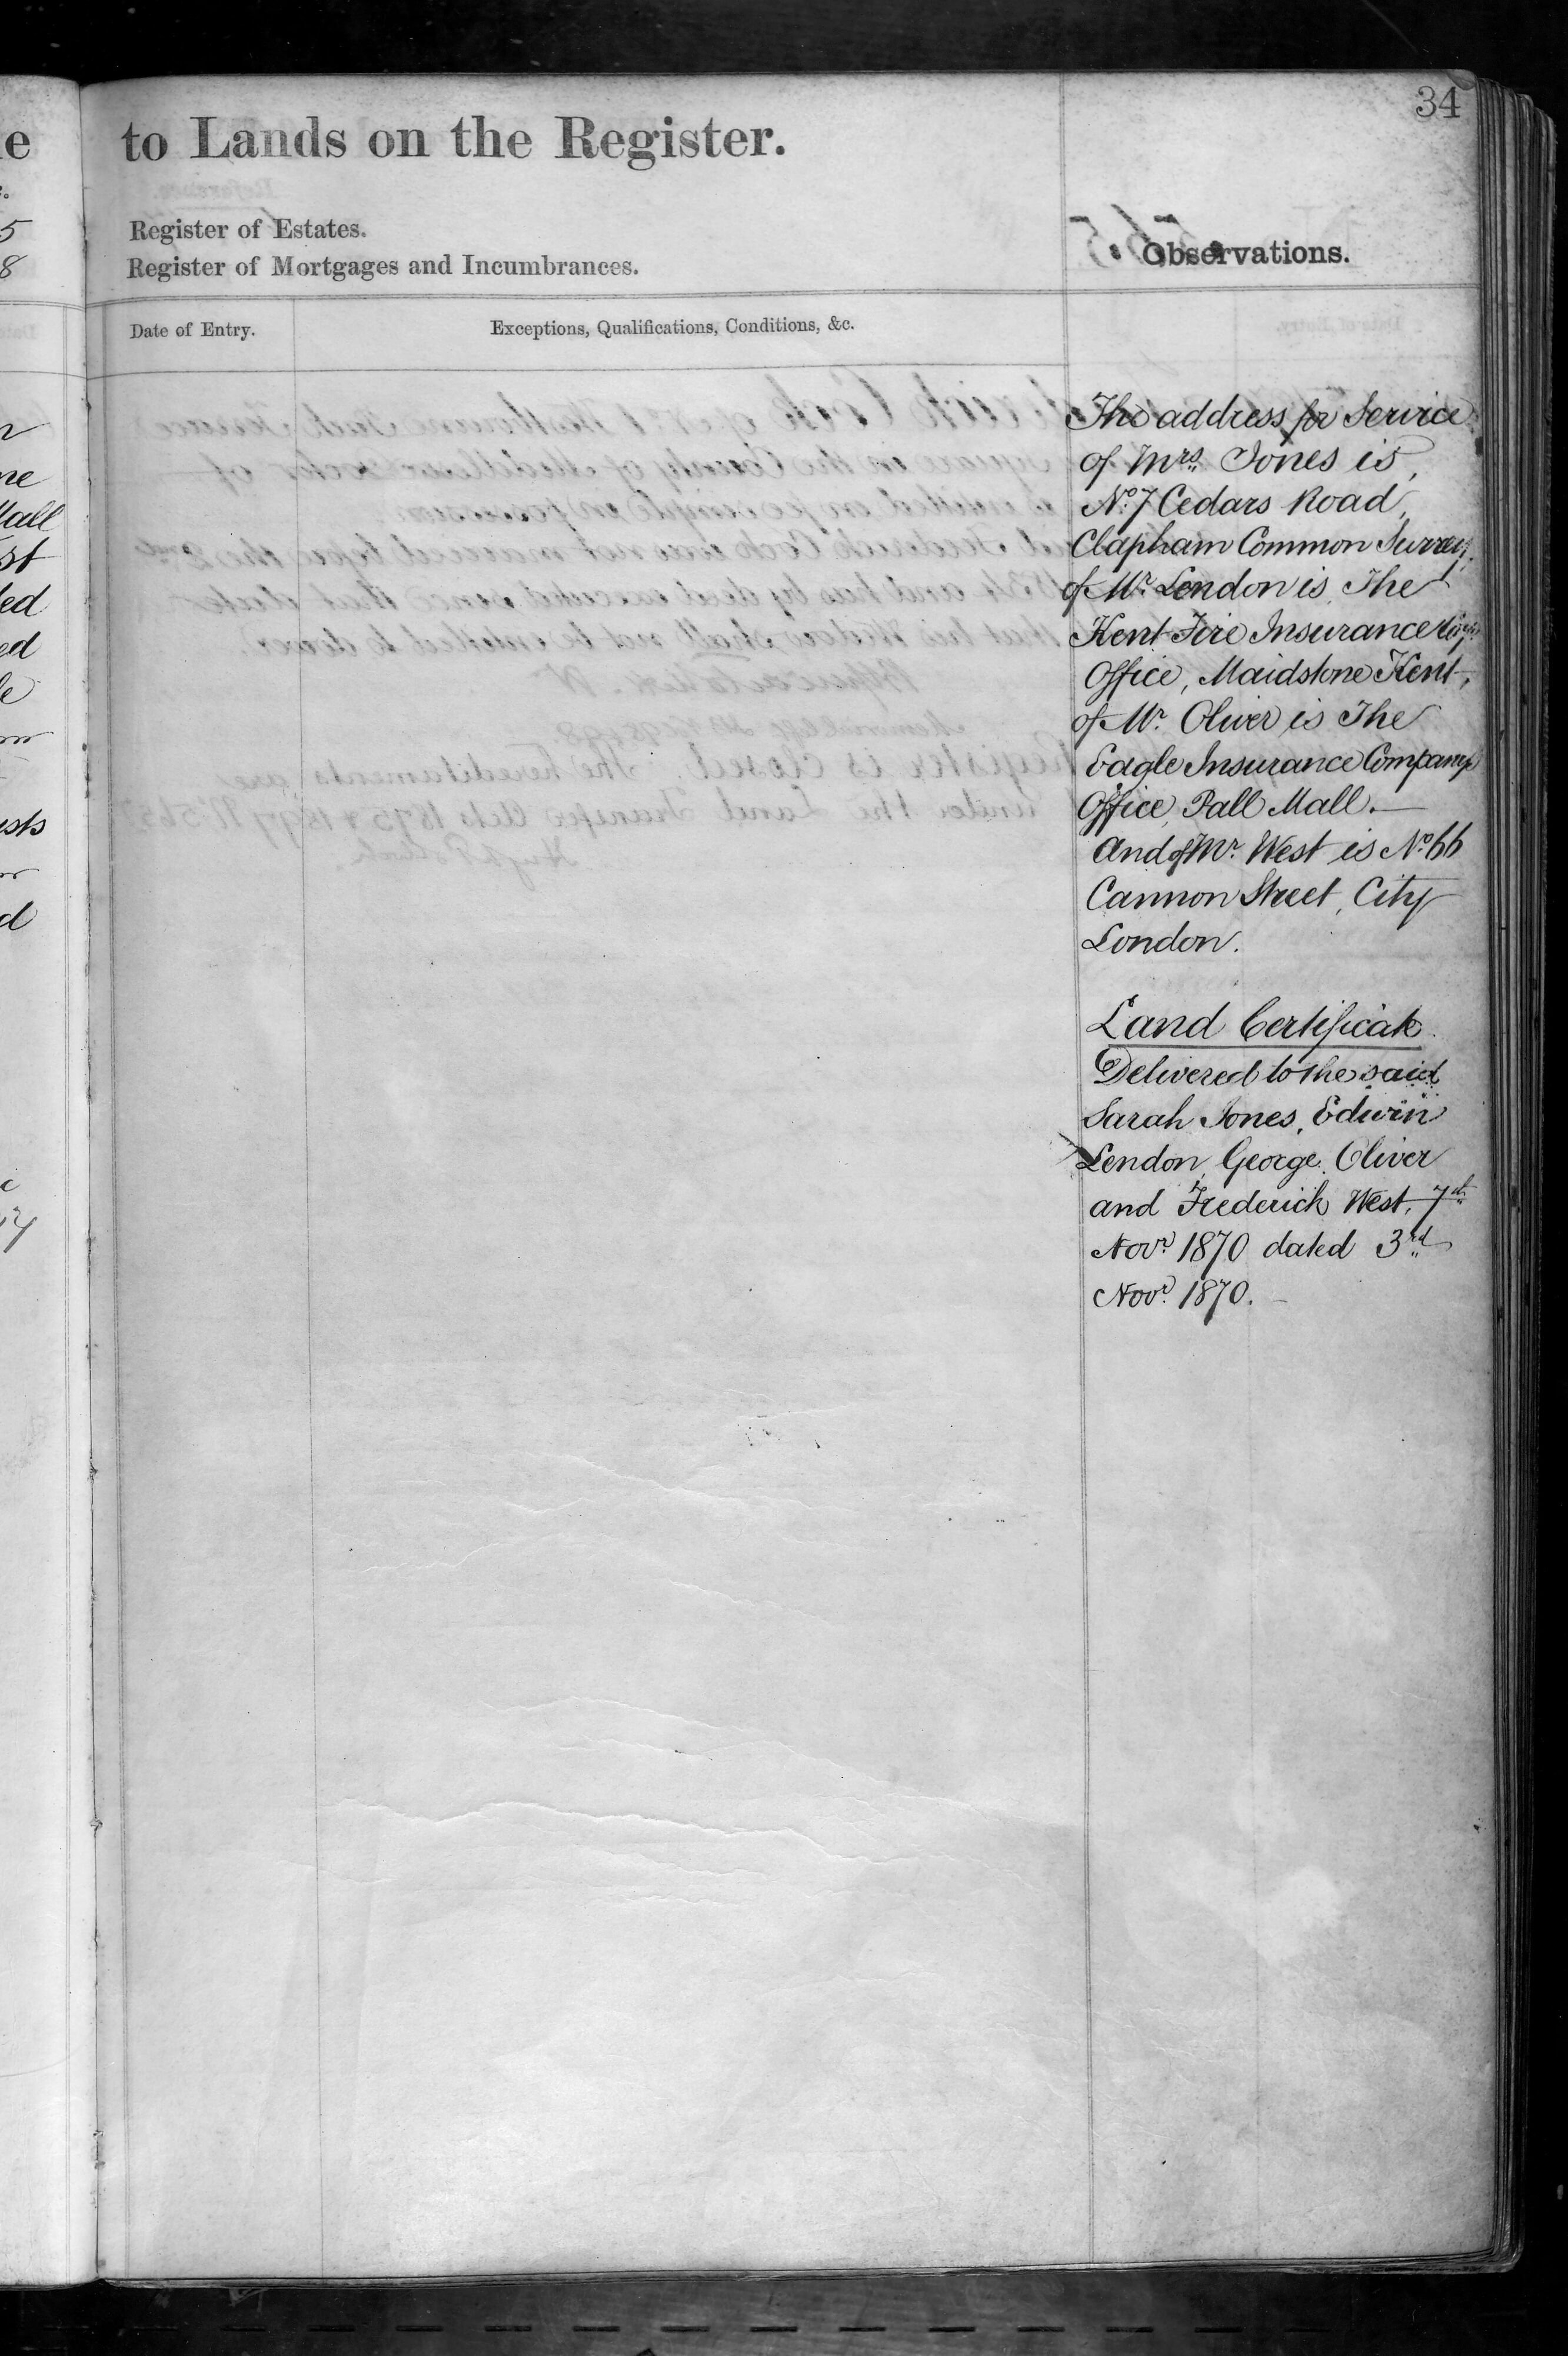 34
to Lands on the Register.
Register of Estates.
Register of Mortgages and Incumbrances.
Observations.
Date of Entry.
Exceptions, Qualifications, Conditions, &c.
The address for Service
of Mrs. Jones is,
No. 7 Cedars Road,
Clapham Common Surrey,
of Mr. Lendon is The
Kent Fire Insurance
Office, Maidstone Kent,
of Mr. Oliver is The
Eagle Insurance Company
Office, Pall Mall.—
And of Mr. West is No. 66
Cannon Street, City
London.
Land Certificate
Delivered to the said
Sarah Jones, Edwin
Lendon, George Oliver
and Frederick West, 7th
Novr. 1870 dated 3rd
Novr. 1870.—